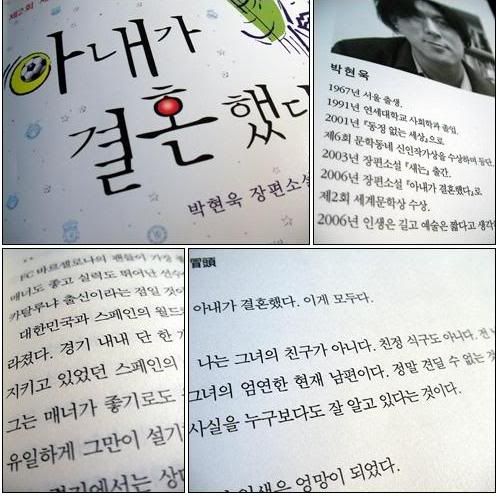 제2회
아내가
결혼했다
박현욱 장편소설
박현욱
1967년 서울 출생.
1991년 연세대학교 사회학과 졸업.
2001년 『동정 없는 세상』으로
제6회 문학동네 신인작가상을 수상하며 등단.
2003년 장편소설 『새는』 출간.
2006년 장편소설 『아내가 결혼했다』로
제2회 세계문학상 수상.
2006년 인생은 길고 예술은 짧다고 생각
FC 바르셀로나의 팬들이 가장
매너도 좋고 실력도 뛰어난 선수
카탈루냐 출신이라는 점일 것이
대한민국과 스페인의 월드
라졌다. 경기 내내 단 한
지키고 있었던 스페인의
그는 매너가 좋기로도
유일하게 그만이 설기
경기에서는 상대
冒頭
아내가 결혼했다. 이게 모두다.
나는 그녀의 친구가 아니다. 친정 식구도 아니다. 전
그녀의 엄연한 현재 남편이다. 정말 견딜 수 없는 것
사실을 누구보다도 잘 알고 있다는 것이다.
인생은 엉망이 되었다.